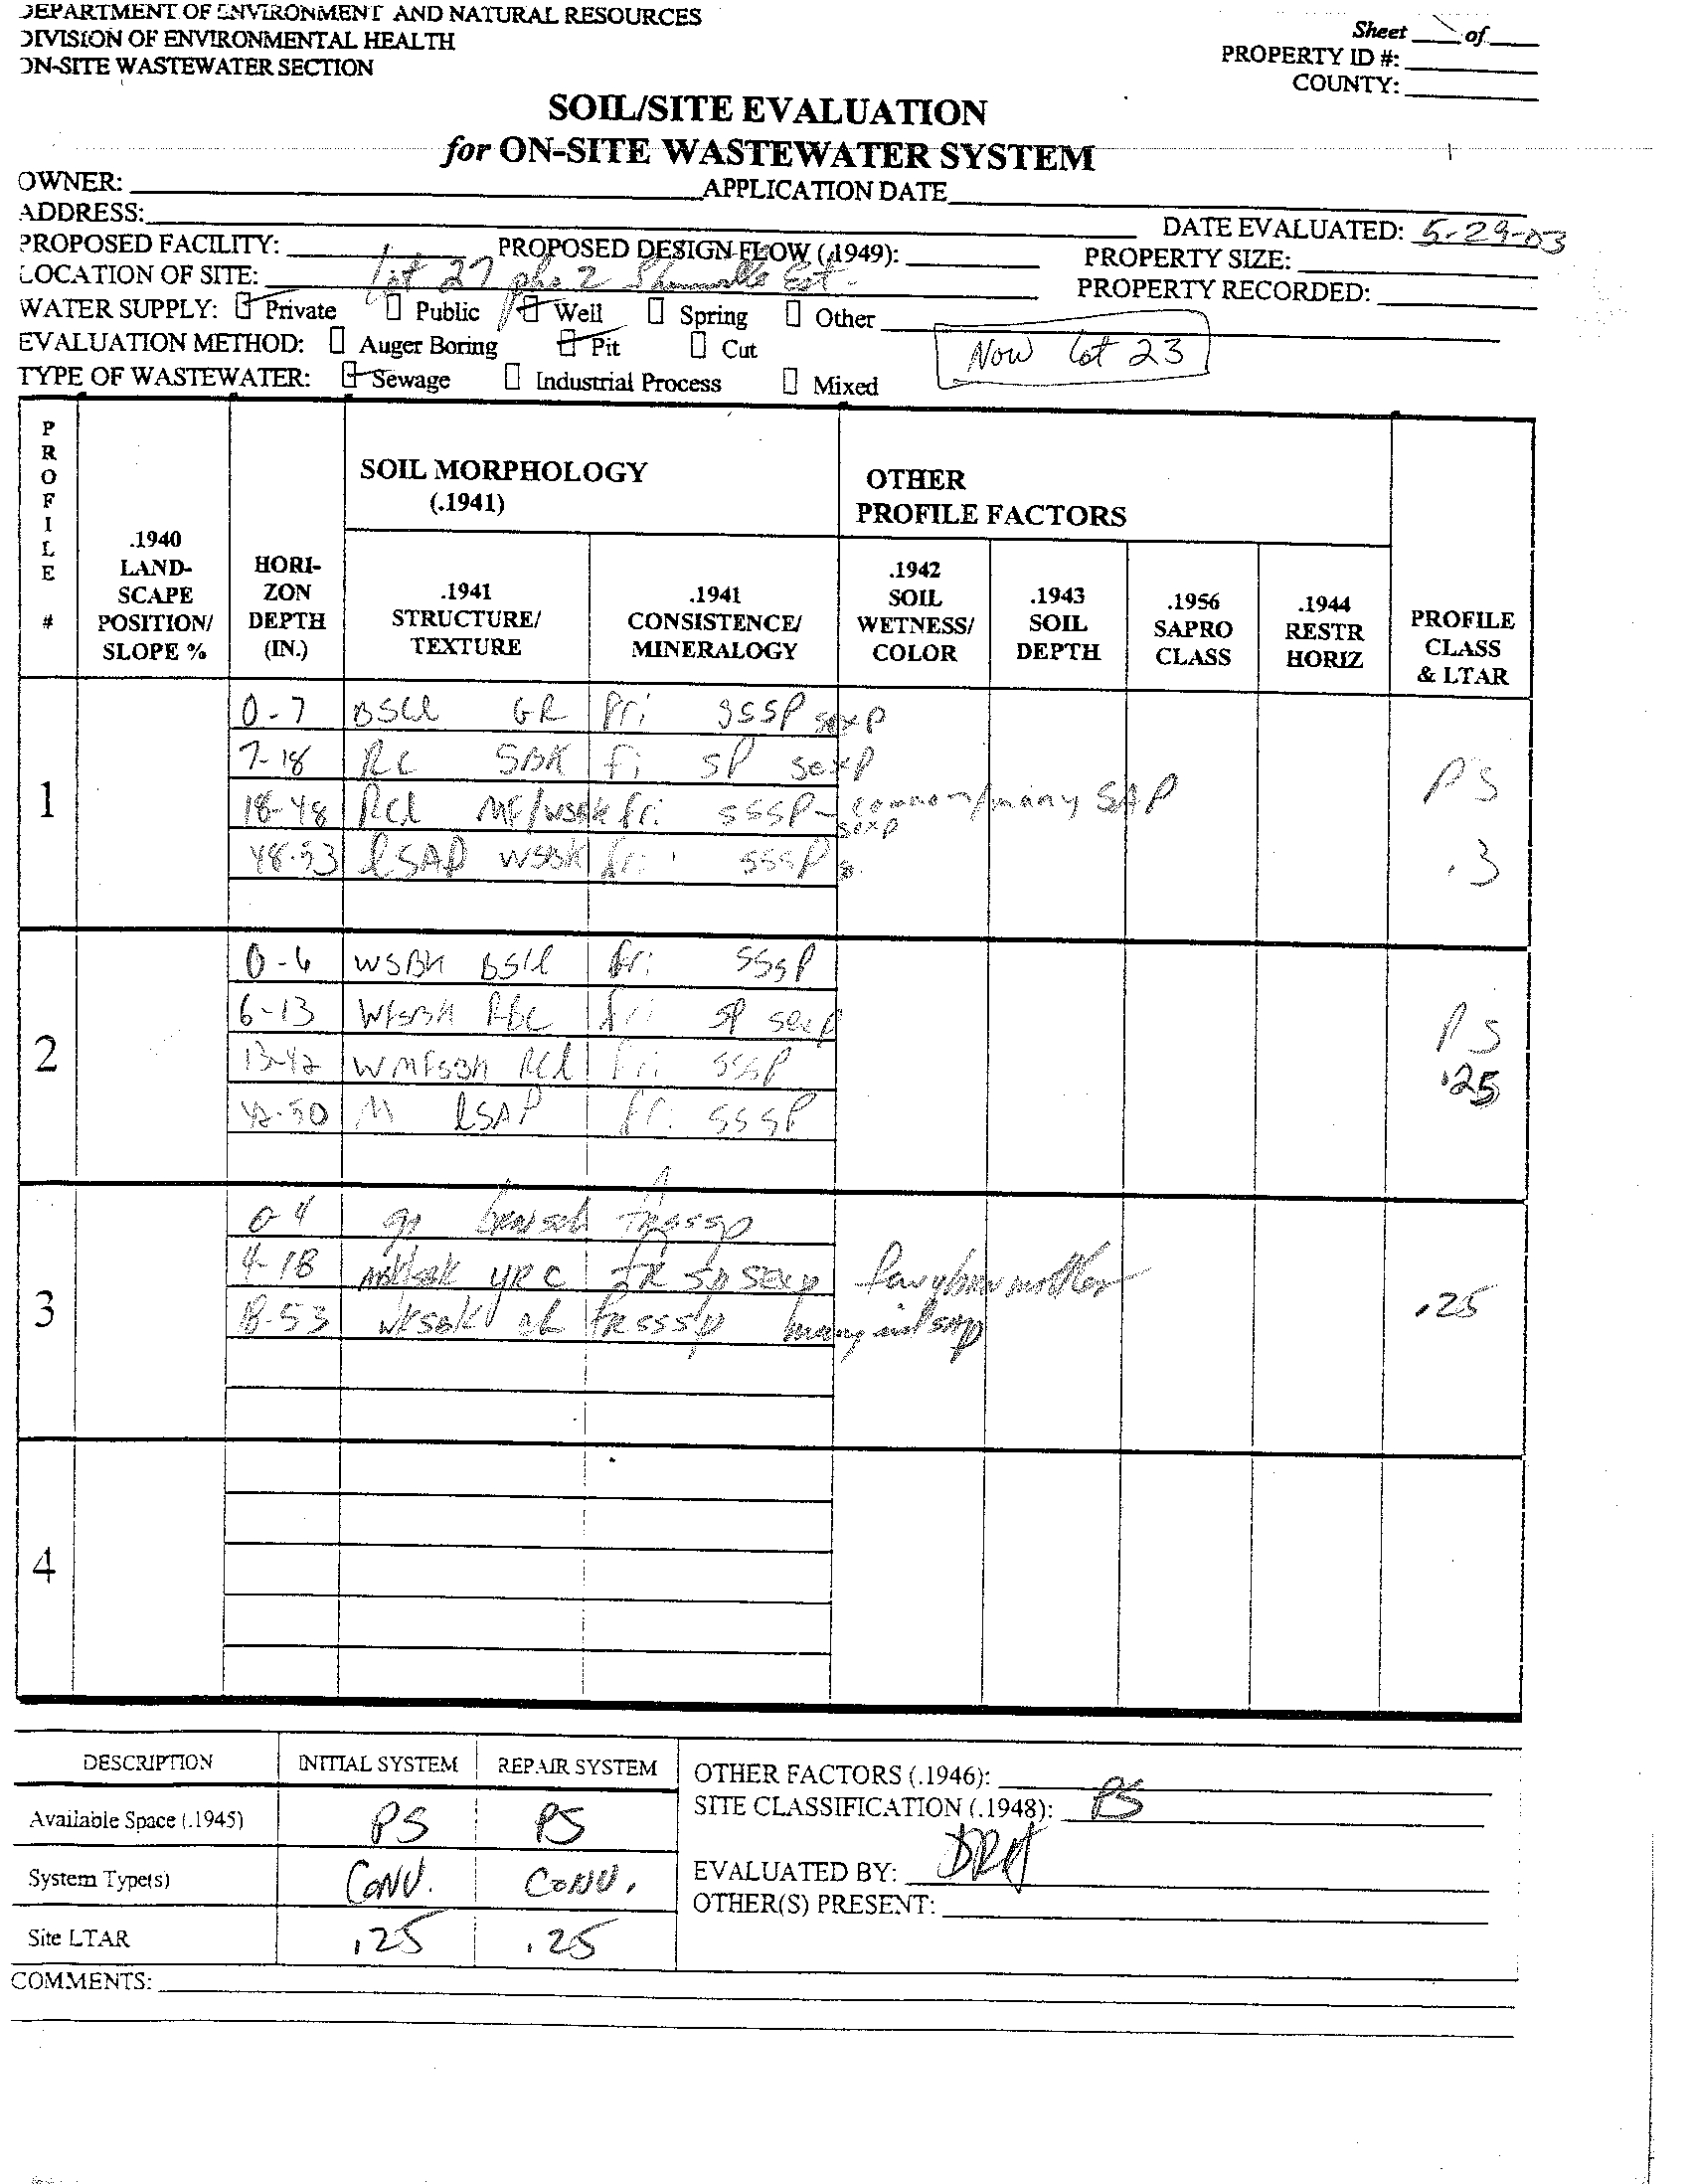 DEPARTMENT OF ENVIRONMENT AND NATURAL RESOURCES
DIVISION OF ENVIRONMENTAL HEALTH
ON-SITE WASTEWATER SECTION
Sheet of
PROPERTY ID #:
COUNTY:
SOIL/SITE EVALUATION
for ON-SITE WASTEWATER SYSTEM
OWNER: APPLICATION DATE
ADDRESS: DATE EVALUATED: 5-29-03
PROPOSED FACILITY: PROPOSED DESIGN FLOW (.1949): PROPERTY SIZE:
LOCATION OF SITE: Lot 27 pha 2 Est. PROPERTY RECORDED:
WATER SUPPLY: Private Public Well Spring Other
EVALUATION METHOD: Auger Boring Pit Cut
Now Lot 23
TYPE OF WASTEWATER: Sewage Industrial Process Mixed
PROFILE #
.1940 LAND-SCAPE POSITION/ SLOPE %
HORI-ZON DEPTH (IN.)
SOIL MORPHOLOGY (.1941)
.1941 STRUCTURE/ TEXTURE
.1941 CONSISTENCE/ MINERALOGY
OTHER PROFILE FACTORS
.1942 SOIL WETNESS/ COLOR
.1943 SOIL DEPTH
.1956 SAPRO CLASS
.1944 RESTR HORIZ
PROFILE CLASS & LTAR
1
0-7 BSCL GR fri SSSP SEXP
7-18 RC SBK fi SP SEXP
18-48 RCL fri SSSP common/many SAP
SEXP
48-53 LSAP WSBK fri SSSP
PS
.3
2
0-6 WSBK BSCL fri SSSP
6-13 WFSBK RBC fri SP SEXP
13-42 WMFSBK RCL fri SSSP
42-50 M LSAP fri SSSP
PS
.25
3
0-4 gr brn scl FRSSSP
4-18 YRC FR SP SEXP few ybrn mottles
18-53 FRSSSP many SAP
.25
4
DESCRIPTION INITIAL SYSTEM REPAIR SYSTEM
Available Space (.1945) PS PS
System Type(s) CONV. CONV.
Site LTAR .25 .25
OTHER FACTORS (.1946):
SITE CLASSIFICATION (.1948): PS
EVALUATED BY:
OTHER(S) PRESENT:
COMMENTS: